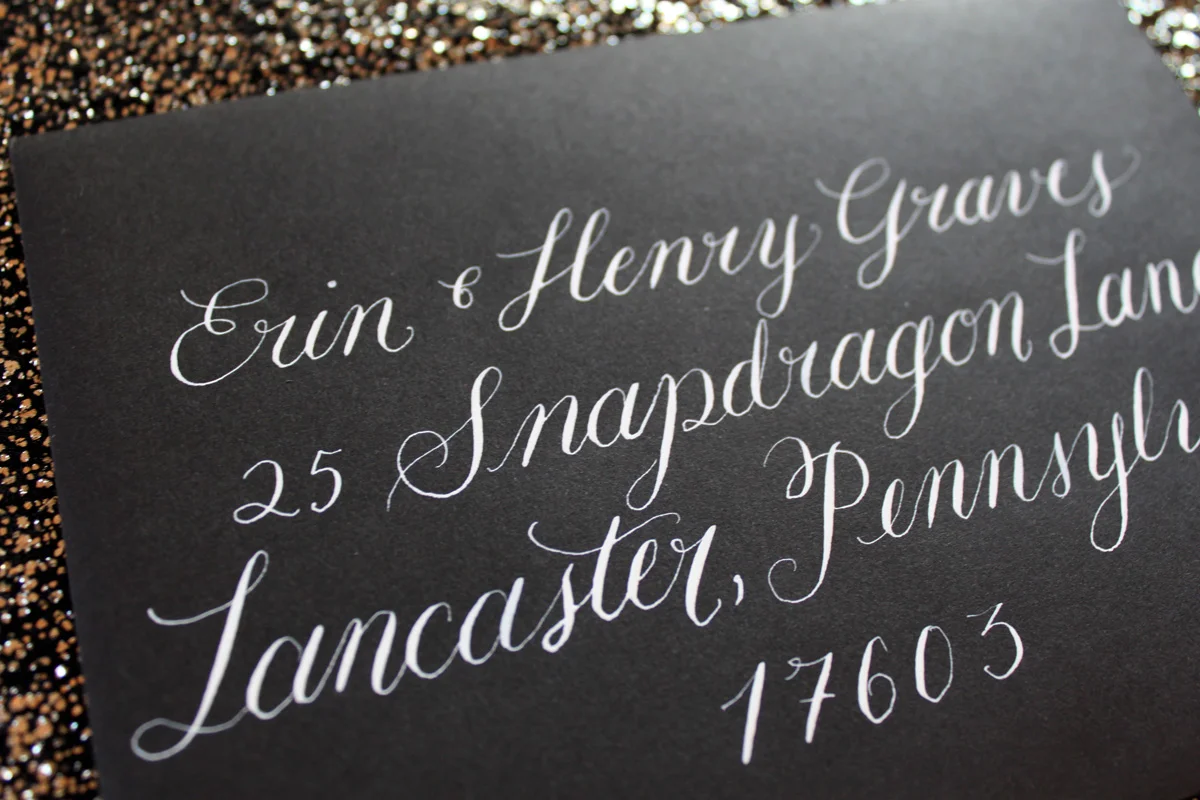 Erin & Henry Graves
25 Snapdragon Lane
Lancaster, Pennsylv
17603